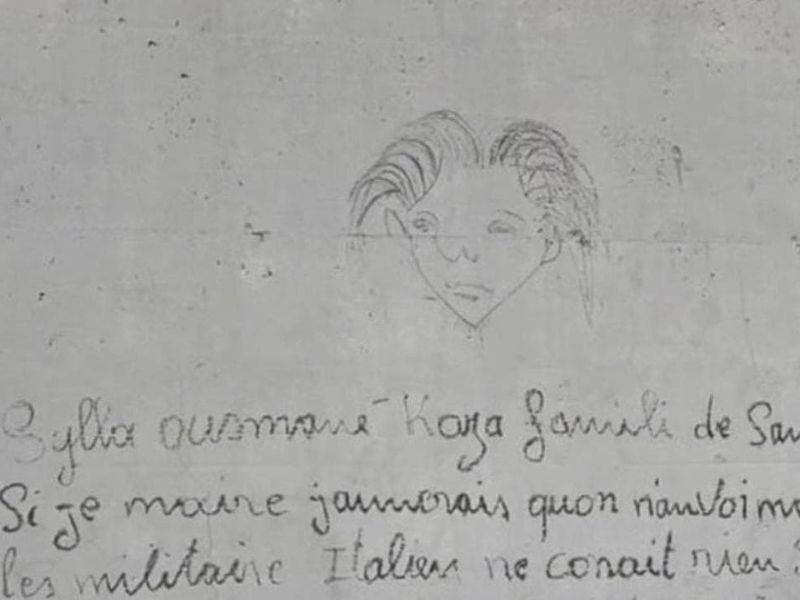 Sylla ousmané Kaza famili de San
Si je maire jaimerais quon n'anvoi
les militaire Italien ne conait rien